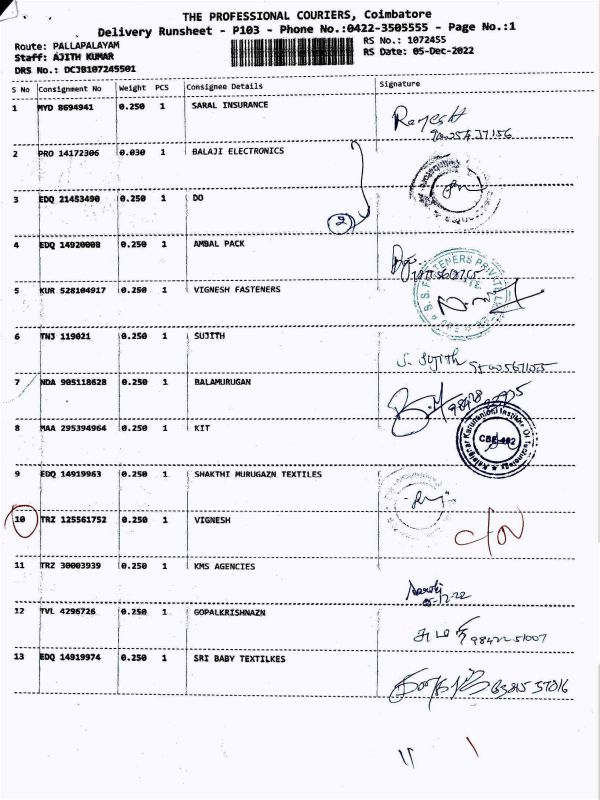 THE PROFESSIONAL COURIERS, Coimbatore
Delivery Runsheet - P103 - Phone No.:0422-3505555 - Page No.:1
Route: PALLAPALAYAM
RS No.: 1072455
Staff: AJITH KUMAR
RS Date: 05-Dec-2022
DRS No.: DCJB107245501
S No Consignment No Weight PCS Consignee Details Signature
1 MYD 8694941 0.250 1 SARAL INSURANCE
2 PRO 14172306 0.030 1 BALAJI ELECTRONICS
3 EDQ 21453490 0.250 1 DO
2
4 EDQ 14920008 0.250 1 AMBAL PACK
5 KUR 528104917 0.250 1 VIGNESH FASTENERS
6 TNJ 119021 0.250 1 SUJITH
S. Sujith
7 NDA 905118628 0.250 1 BALAMURUGAN
8 MAA 295394964 0.250 1 KIT
9 EDQ 14919963 0.250 1 SHAKTHI MURUGAZN TEXTILES
10 TRZ 125561752 0.250 1 VIGNESH
11 TRZ 30003939 0.250 1 KMS AGENCIES
05-12-22
12 TVL 4296726 0.250 1 GOPALKRISHNAZN
98422-51007
13 EDQ 14919974 0.250 1 SRI BABY TEXTILKES